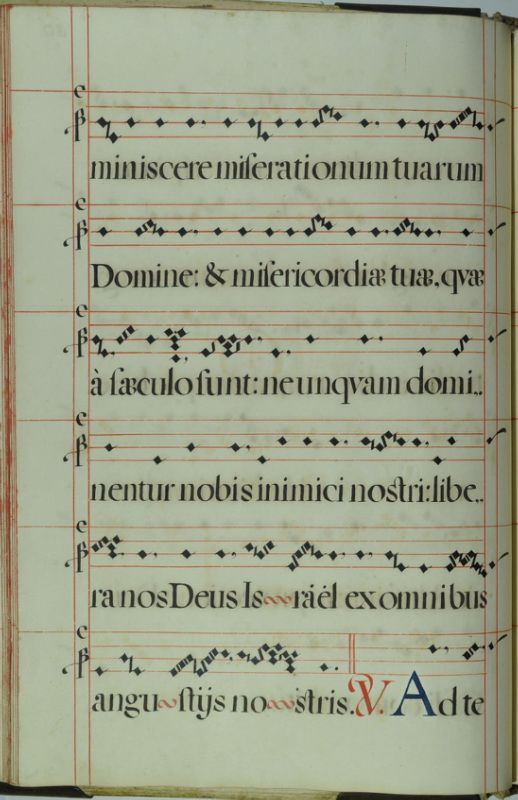 miniscere miserationum tuarum
Domine: & misericordiæ tuæ, qvæ
à sæculo sunt: ne unqvam domi..
nentur nobis inimici nostri: libe..
ra nos Deus Israél ex omnibus
angustijs nostris. V. Ad te